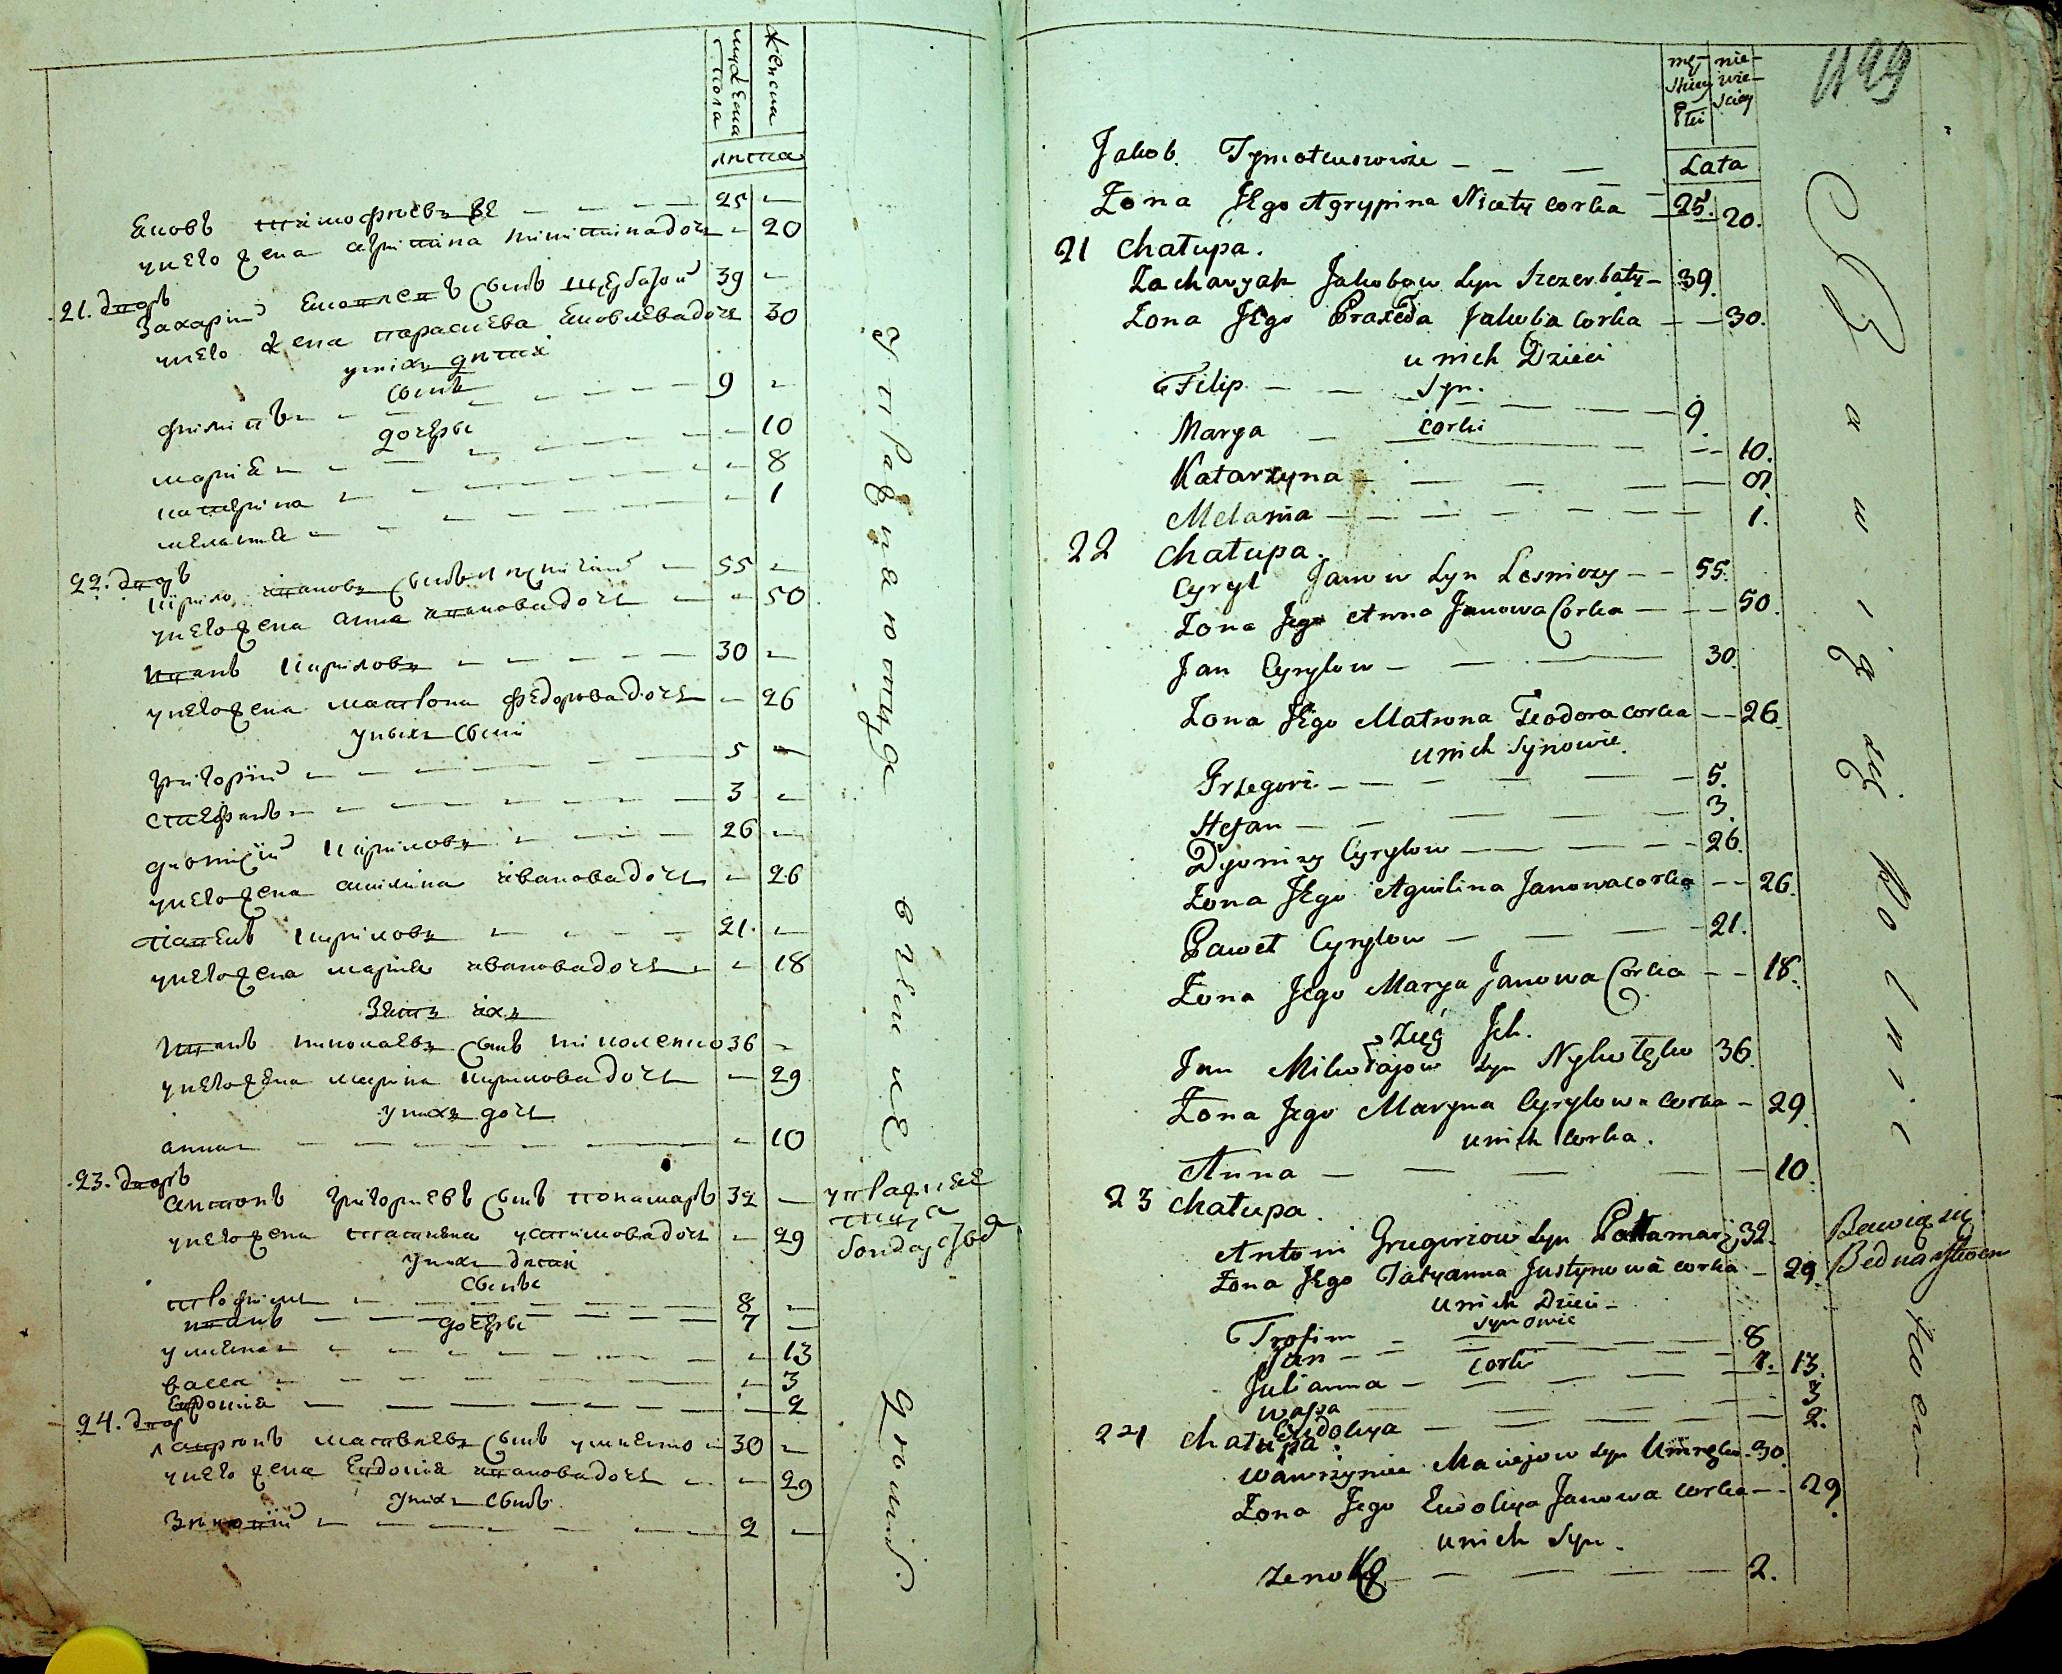 мужеска пола
женска
лѣта
Яковъ Тимофѣевъ — — — 25 —
у него жена Агрипина Никитина дочь — 20
21. дворъ
Захарій Яковлевъ сынъ Щербатой 39 —
у него жена Параскева Яковлева дочь 30
у нихъ дѣти
сынъ
Филипъ — — — 9 —
дочеры
Марія — — — 10
Катерина — — — 8
Меланія — — — 1
22. дворъ
Кирило Ивановъ сынъ — 55 —
у него жена Анна Иванова дочь — 50
Иванъ Кириловъ — — — 30 —
у него жена Матрона Федорова дочь — 26
у нихъ сыны
Григорій — — — 5 —
Стефанъ — — — 3 —
Діонисій Кириловъ — — — 26 —
у него жена Акилина Иванова дочь — 26
Павелъ Кириловъ — — — 21. —
у него жена Марія Иванова дочь — 18
Зять ихъ
Иванъ Николаевъ сынъ 36 —
у него жена Марина Кирилова дочь — 29
у нихъ дочь
Анна — — — 10
23. дворъ
Антонъ Григоріевъ сынъ Понамаръ 32 —
у него жена Татіяна Устимова дочь — 29
у нихъ дѣти
сыны
Трофимъ — — — 8 —
Иванъ — — — 7 —
дочеры
Улиена — — — 13
Васса — — — 3
Евдокія — — — 2
24. дворъ
Лаврѣнъ Матвѣевъ сынъ 30 —
у него жена Евдокія Иванова дочь — 29
у нихъ сынъ
Зиновій — — — 2 —
упражняютца
в земле
упражняе
тца
бондарствѡ
męskiey Płci
niewiesciey
Lata
1129
Jakob Tymoteuszowicz — — — 25.
Zona Jego Agrypina Nicety corka — 20.
21 Chałupa.
Zacharyasz Jakobow syn Szczerbaty — 39.
Zona Jego Praxeda Jakuba corka — — 30.
u nich Dzieci
Syn.
Filip — — — 9.
corki
Marya — — — 10.
Katarzyna — — — 8.
Melania — — — 1.
22 Chałupa.
Cyryl Janow syn Lesniczy — — 55.
Zona Jego Anna Janowa Corka — — 50.
Jan Cyrylow — — — 30.
Zona Jego Matrona Teodora corka — — 26.
u nich Synowie.
Grzegorz — — — 5.
Stefan — — — 3.
Dyonizy Cyrylow — — — 26.
Zona Jego Aquilina Janowa corka — — 26.
Paweł Cyrylow — — — 21.
Zona Jego Marya Janowa Corka — — 18.
Zięć Jch.
Jan Mikołajow syn 36.
Zona Jego Maryna Cyrylowa corka — 29.
u nich corka.
Anna — — — 10.
23 Chałupa.
Antoni Grzegorzow syn Pałłamarz 32.
Zona Jego Tatyanna Justynowa corka — 29.
u nich Dzieci —
Synowie
Trofim — — — 8
Jan — — — 7.
corki
Julianna — — — 13.
Wassa — — — 3
Eudokya — — — 2.
24 Chałupa.
Wawrzyniec Maciejow syn 30.
Zona Jego Eudokya Janowa corka — — 29.
u nich Syn.
Zeno — — — 2.
Bawią się Rolnictwem
Bawią się
Bednarstwem